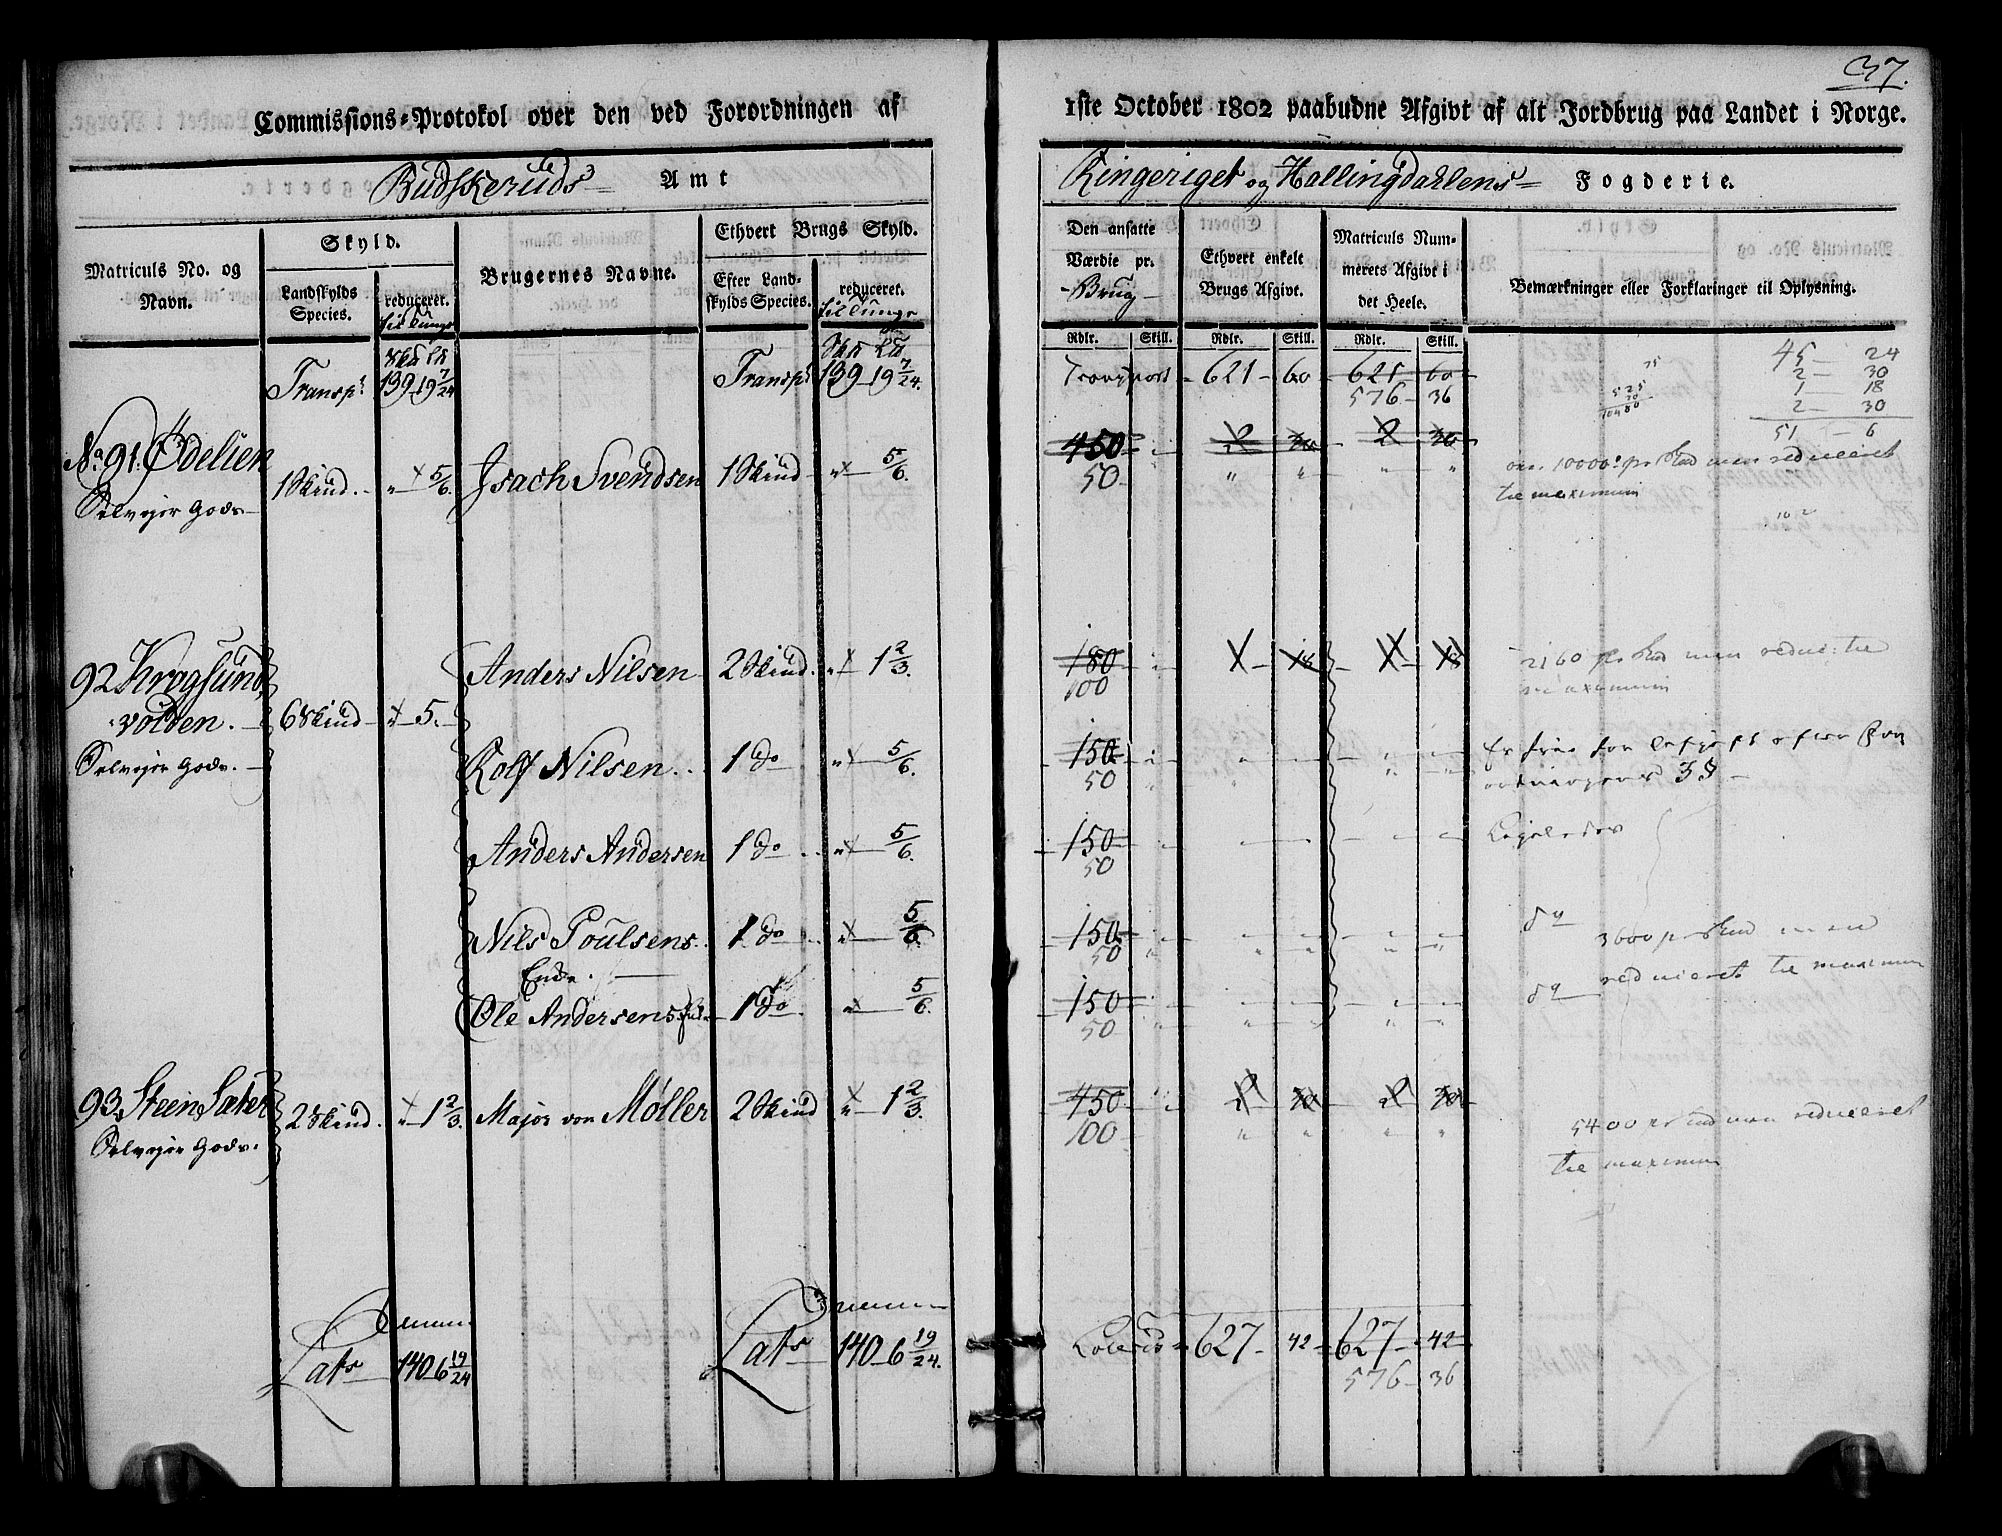 37.
Commissions-Protokol over den ved Forordningen af
1ste October 1802 paabudne Afgivt af alt Jordbrug paa Landet i Norge.
Budskeruds Amt
Ringeriget og Hallingdahlens Fogderie.
Matriculs No. og Navn.
Skyld.
Landskylds Species.
reduceret. til tunge
Brugernes Navne.
Ethvert Brugs Skyld.
Efter Landskylds Species.
reduceret. til tunge
Den ansatte Værdie pr. Brug
Ethvert enkelt Brugs Afgivt.
Matriculs Nummerets Afgivt i det Heele.
Bemærkninger eller Forklaringer til Oplysning.
Rdlr. Skill. Rdlr. Skill. Rdlr. Skill.
Transpt 139 - 19 7/24 Transpt 139 - 19 7/24. Transport 621 - 60 621 60
576 - 36
75
525
10480
45 - 24
2 - 30
1 - 18
2 - 30
51 - 6
No. 91. Ödelien 1 Skind. " 5/6. Isach Svendsen 1 Skind " 5/6. 450 2 30 2 30
Selvejer Gods 50 " " " " 10000 pr Skd men reduceret
til maximum
92 Kragsund Anders Nilsen 2 Skind. " 1 2/3. 180 1 18 1 18 2160 pr Skd men reducr. til
100 maximum
volden. 6 Skind " 5.
Selvejer Gods. Rolf Nilsen 1 do " 5/6. 150
50
Er frie for efter For
ordningens 3 §
Anders Andersen 1 do " 5/6. 150 Ligeledes
50
Nils Poulsens 1 do " 5/6. 150 do 3600 pr Skd men
Enke. 50 reduceret til maximum
Ole Andersens 1 do " 5/6. 150 do
50
93 Steen Sæter 2 Skind. " 1 2/3. Major von Møller 2 Skind " 1 2/3. 450 2 30 2 30
Selvejer Gods. 100 " " " " 5400 pr Skd men reduceret
til maximum
Summa Summa
Lats 140 6 19/24 Lats 140 6 19/24. Lateris 627 - 42 627 - 42
576 - 36